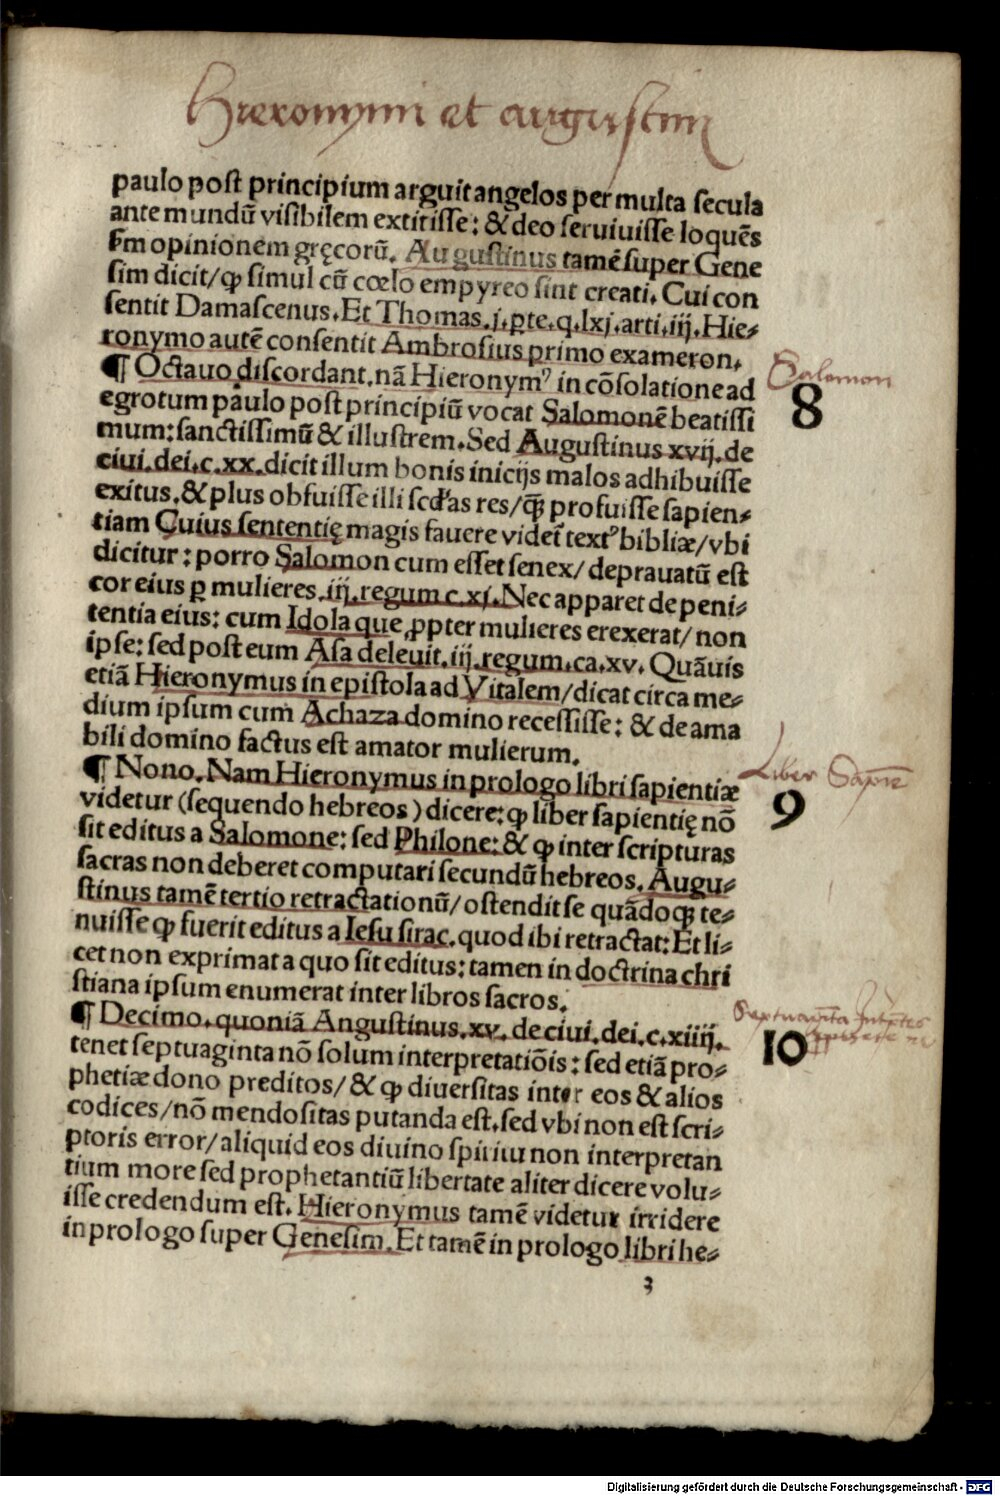 Hieronymi et augustini
paulo post principium arguit angelos per multa secula
ante mundū visibilem extitisse: & deo seruiuisse loquēs
ſm opinionem gręcorū. Augustinus tamē super Gene
sim dicit/ꝙ simul cū cœlo empyreo sint creati. Cui con
sentit Damascenus. Et Thomas. j. ꝑte. q. lxj. arti. iij. Hie⸗
ronymo autē consentit Ambrosius primo exameron.
¶ Octauo discordant. nā Hieronymꝰ in cōsolatione ad
Salomon
8
egrotum paulo post principiū vocat Salomonē beatissi
mum: sanctissimū & illustrem. Sed Augustinus xvij. de
ciui. dei. c. xx. dicit illum bonis inicijs malos adhibuisse
exitus. & plus obfuisse illi scđas res/ꝙ̄ profuisse sapien⸗
tiam Cuius sententię magis fauere videt̄ textꝰ bibliæ/vbi
dicitur: porro Salomon cum esset senex/ deprauatū est
cor eius ꝑ mulieres. iij. regum c. xj. Nec apparet de peni⸗
tentia eius: cum Idola que ꝓpter mulieres erexerat/ non
ipse: sed post eum Asa deleuit. iij. regum. ca. xv. Quāuis
etiā Hieronymus in epistola ad Vitalem/dicat circa me⸗
dium ipsum cum Achaza domino recessisse: & de ama
bili domino factus est amator mulierum.
¶ Nono. Nam Hieronymus in prologo libri sapientiæ
Liber Sapīe
9
videtur (sequendo hebreos) dicere: ꝙ liber sapientię nō
sit editus a Salomone: sed Philone: & ꝙ inter scripturas
sacras non deberet computari secundū hebreos. Augu⸗
stinus tamē tertio retractationū/ ostendit se quādoqꝫ te⸗
nuisse ꝙ fuerit editus a Iesu sirac. quod ibi retractat: Et li⸗
cet non exprimat a quo sit editus: tamen in doctrina chri
stiana ipsum enumerat inter libros sacros.
¶ Decimo. quoniā Angustinus. xv. de ciui. dei. c. xiiij.
Septuagīta
10
tenet septuaginta nō solum interpretatiōis: sed etiā pro⸗
phetiæ dono preditos/ & ꝙ diuersitas inter eos & alios
codices/nō mendositas putanda est. sed vbi non est scri⸗
ptoris error/aliquid eos diuino spiritu non interpretan
tium more sed prophetantiū libertate aliter dicere volu⸗
isse credendum est. Hieronymus tamē videtur irridere
in prologo super Genesim. Et tamē in prologo libri he⸗
3
Digitalisierung gefördert durch die Deutsche Forschungsgemeinschaft - DFG